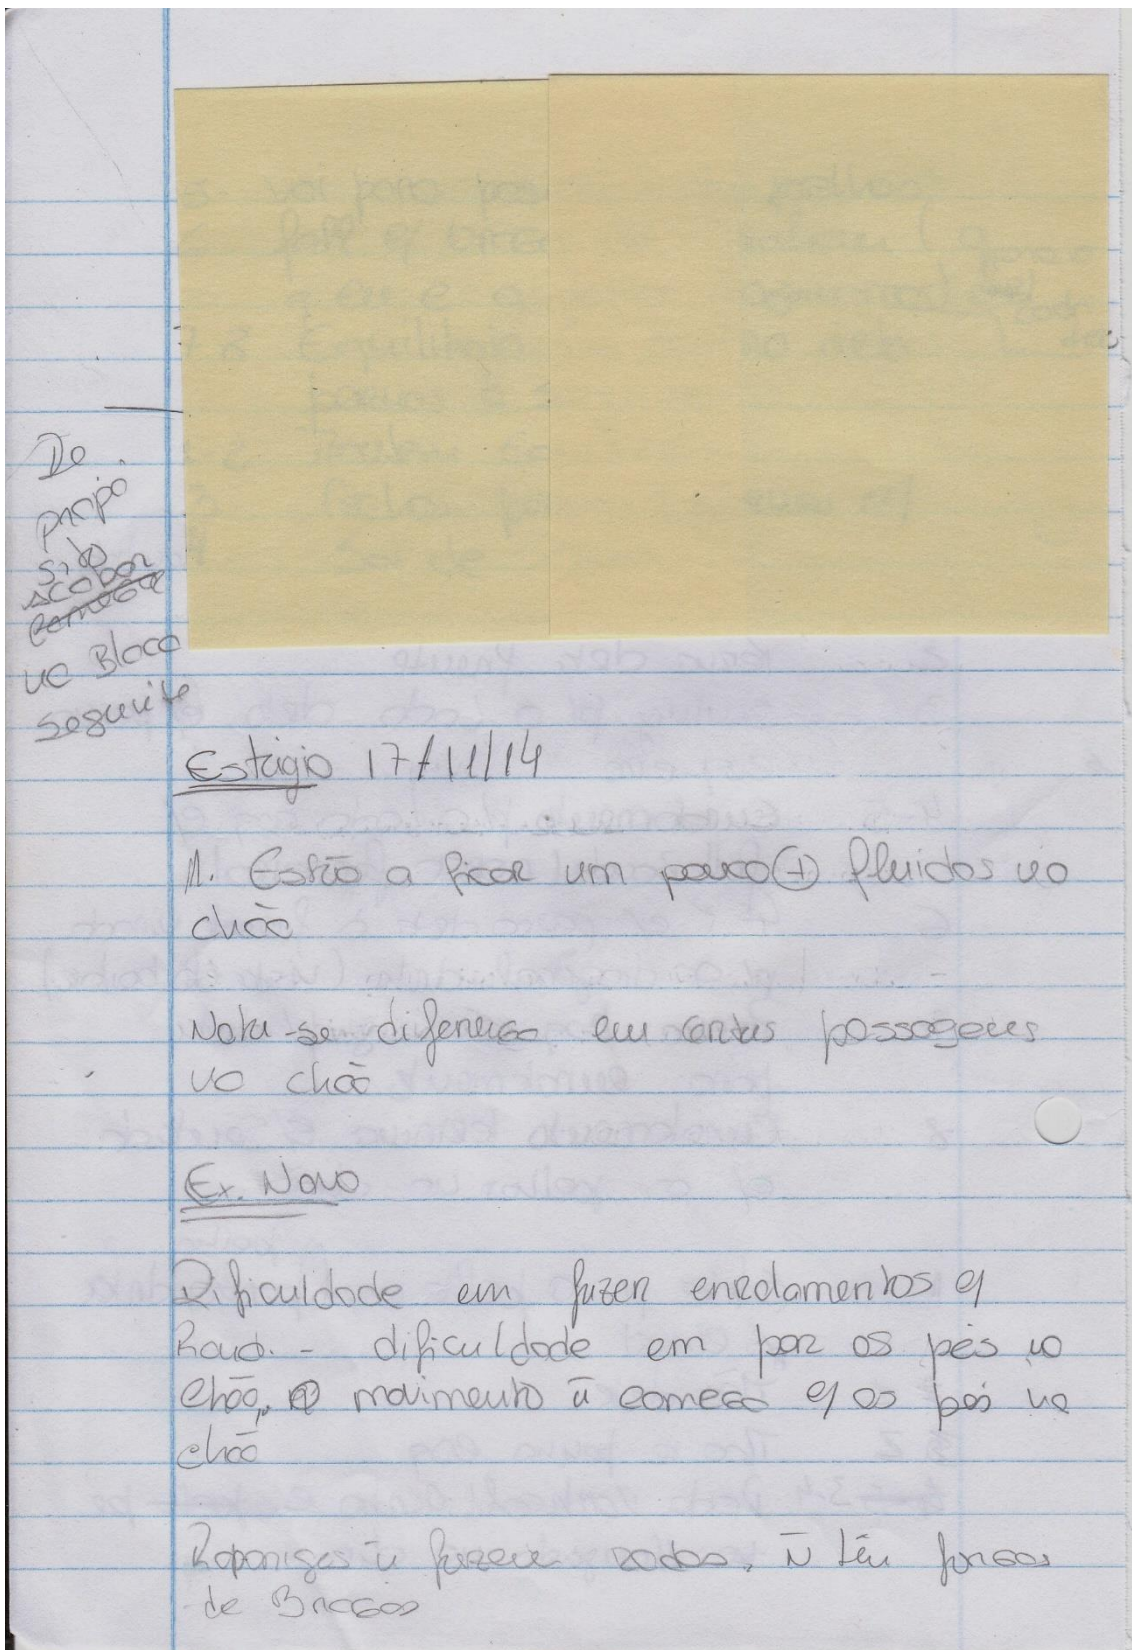 De
propó
sito
acabar
no Bloco
seguinte
Estágio 17/11/14
1. Estão a ficar um pouco + fluidos no
chão
Nota-se diferença em certas passagens
no chão
Ex. Novo
Dificuldade em fazer enrolamentos c/
dificuldade em por os pés no
chão, o movimento ñ começa c/ os pés no
chão
Raparigas ñ fazem rodas, Ñ têm forças
de Braços